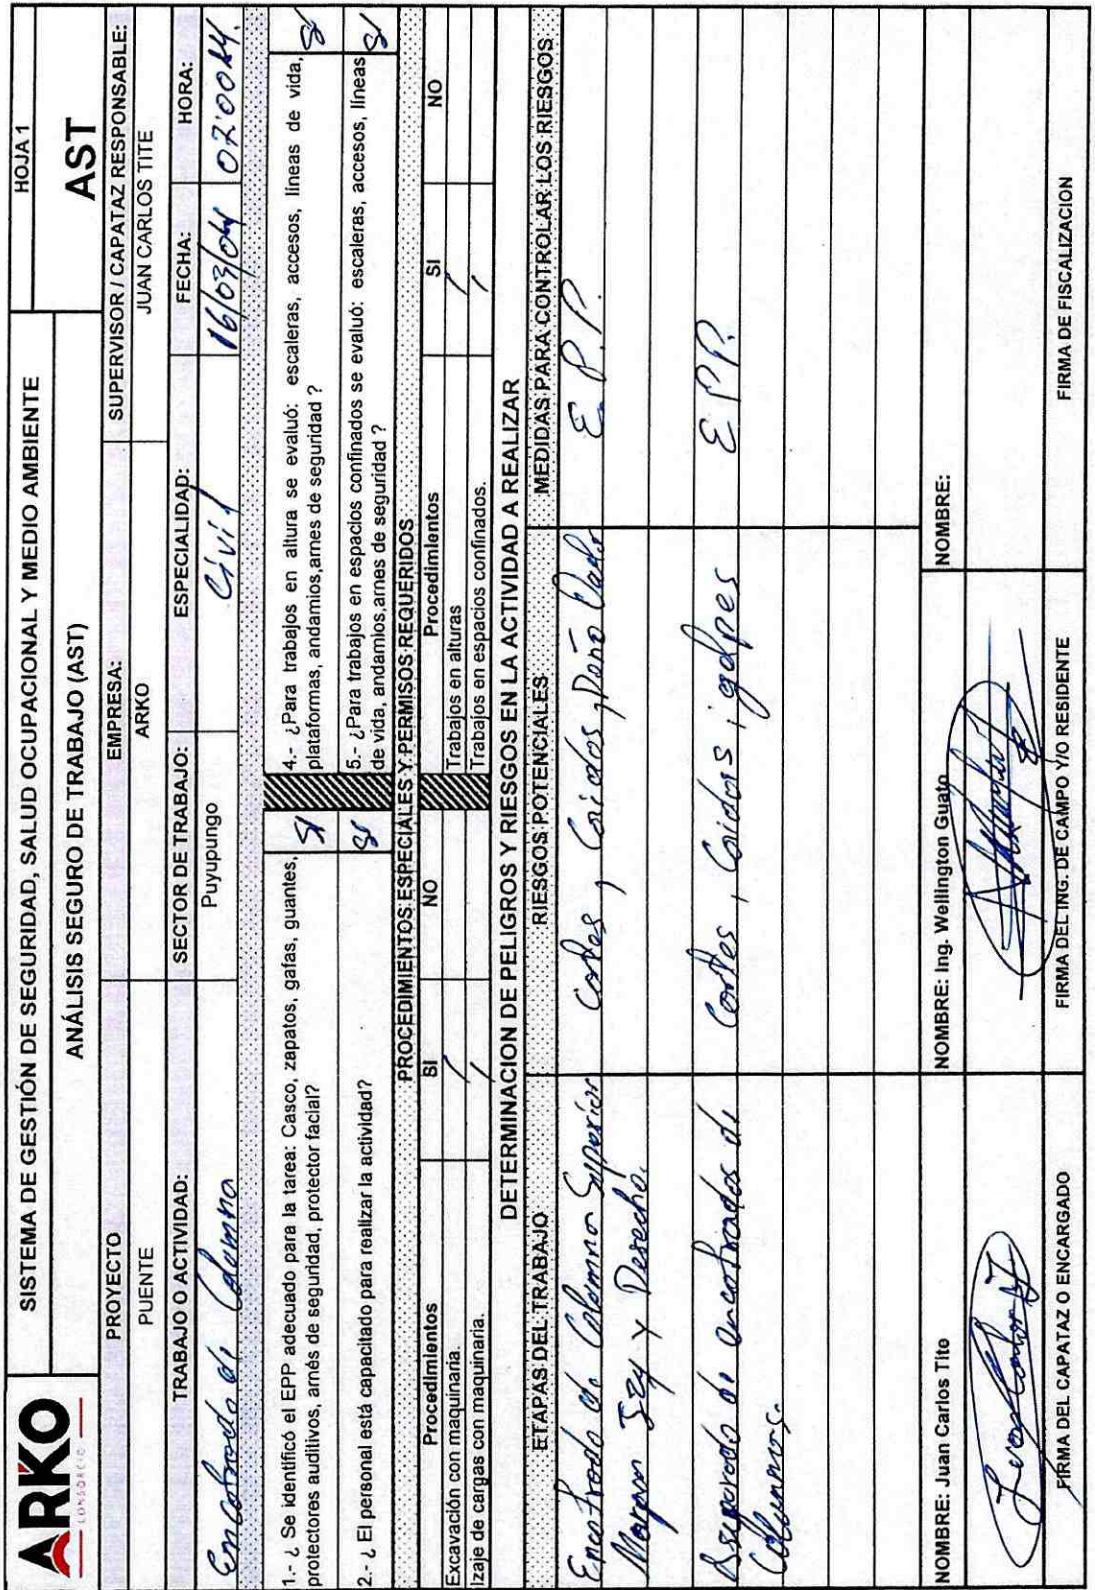 ARKO
CONSORCIO
SISTEMA DE GESTIÓN DE SEGURIDAD, SALUD OCUPACIONAL Y MEDIO AMBIENTE
HOJA 1
ANÁLISIS SEGURO DE TRABAJO (AST)
AST
PROYECTO
EMPRESA:
SUPERVISOR / CAPATAZ RESPONSABLE:
PUENTE
ARKO
JUAN CARLOS TITE
TRABAJO O ACTIVIDAD:
SECTOR DE TRABAJO:
ESPECIALIDAD:
FECHA:
HORA:
Encofrado de Columna
Puyupungo
Civil
16/03/04
07:00
1.- ¿ Se identificó el EPP adecuado para la tarea: Casco, zapatos, gafas, guantes,
protectores auditivos, arnés de seguridad, protector facial?
SI
4.- ¿Para trabajos en altura se evaluó: escaleras, accesos, líneas de vida,
plataformas, andamios,arnes de seguridad ?
SI
2.- ¿ El personal está capacitado para realizar la actividad?
SI
5.- ¿Para trabajos en espacios confinados se evaluó: escaleras, accesos, líneas
de vida, andamios,arnes de seguridad ?
SI
PROCEDIMIENTOS ESPECIALES Y PERMISOS REQUERIDOS
Procedimientos
SI
NO
Procedimientos
SI
NO
Excavación con maquinaria.
/
Trabajos en alturas
/
Izaje de cargas con maquinaria.
/
Trabajos en espacios confinados.
/
DETERMINACION DE PELIGROS Y RIESGOS EN LA ACTIVIDAD A REALIZAR
ETAPAS DEL TRABAJO
RIESGOS POTENCIALES
MEDIDAS PARA CONTROLAR LOS RIESGOS
Encofrado de Columna Superior
Cortes, Caidas,
E.P.P.
Margen Izq y Derecho.
de encofrados de
Cortes, Caidas, golpes
E.P.P.
Columnas.
NOMBRE: Juan Carlos Tite
NOMBRE: Ing. Wellington Guato
NOMBRE:
FIRMA DEL CAPATAZ O ENCARGADO
FIRMA DEL ING. DE CAMPO Y/O RESIDENTE
FIRMA DE FISCALIZACION